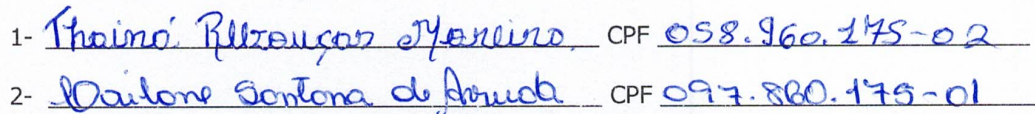 1- Thainá Rebouças Moreira CPF 058.960.175-02
2- Santana de Arruda CPF 097.860.175-01